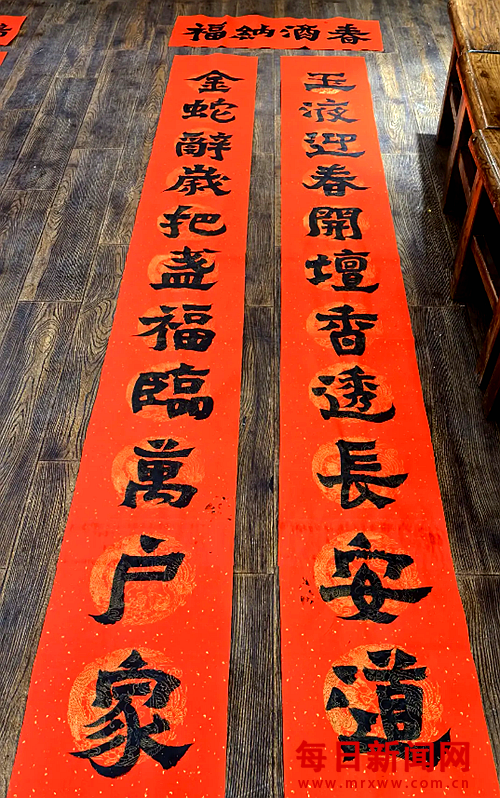 春酒納福
玉液迎春開壇香透長安道
金蛇辭歲把盞福臨萬户家
每日新闻网
www.mrxww.com.cn